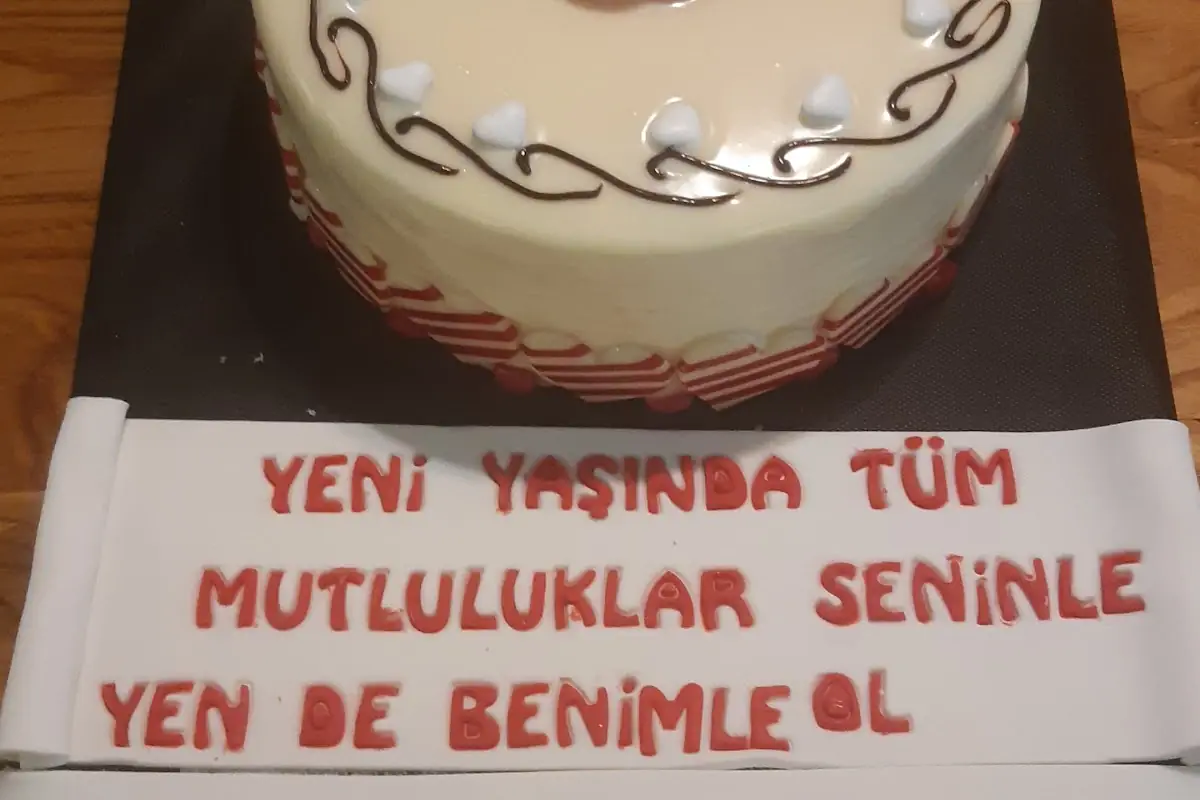 YENİ YAŞINDA TÜM
MUTLULUKLAR SENİNLE
YEN DE BENİMLE OL